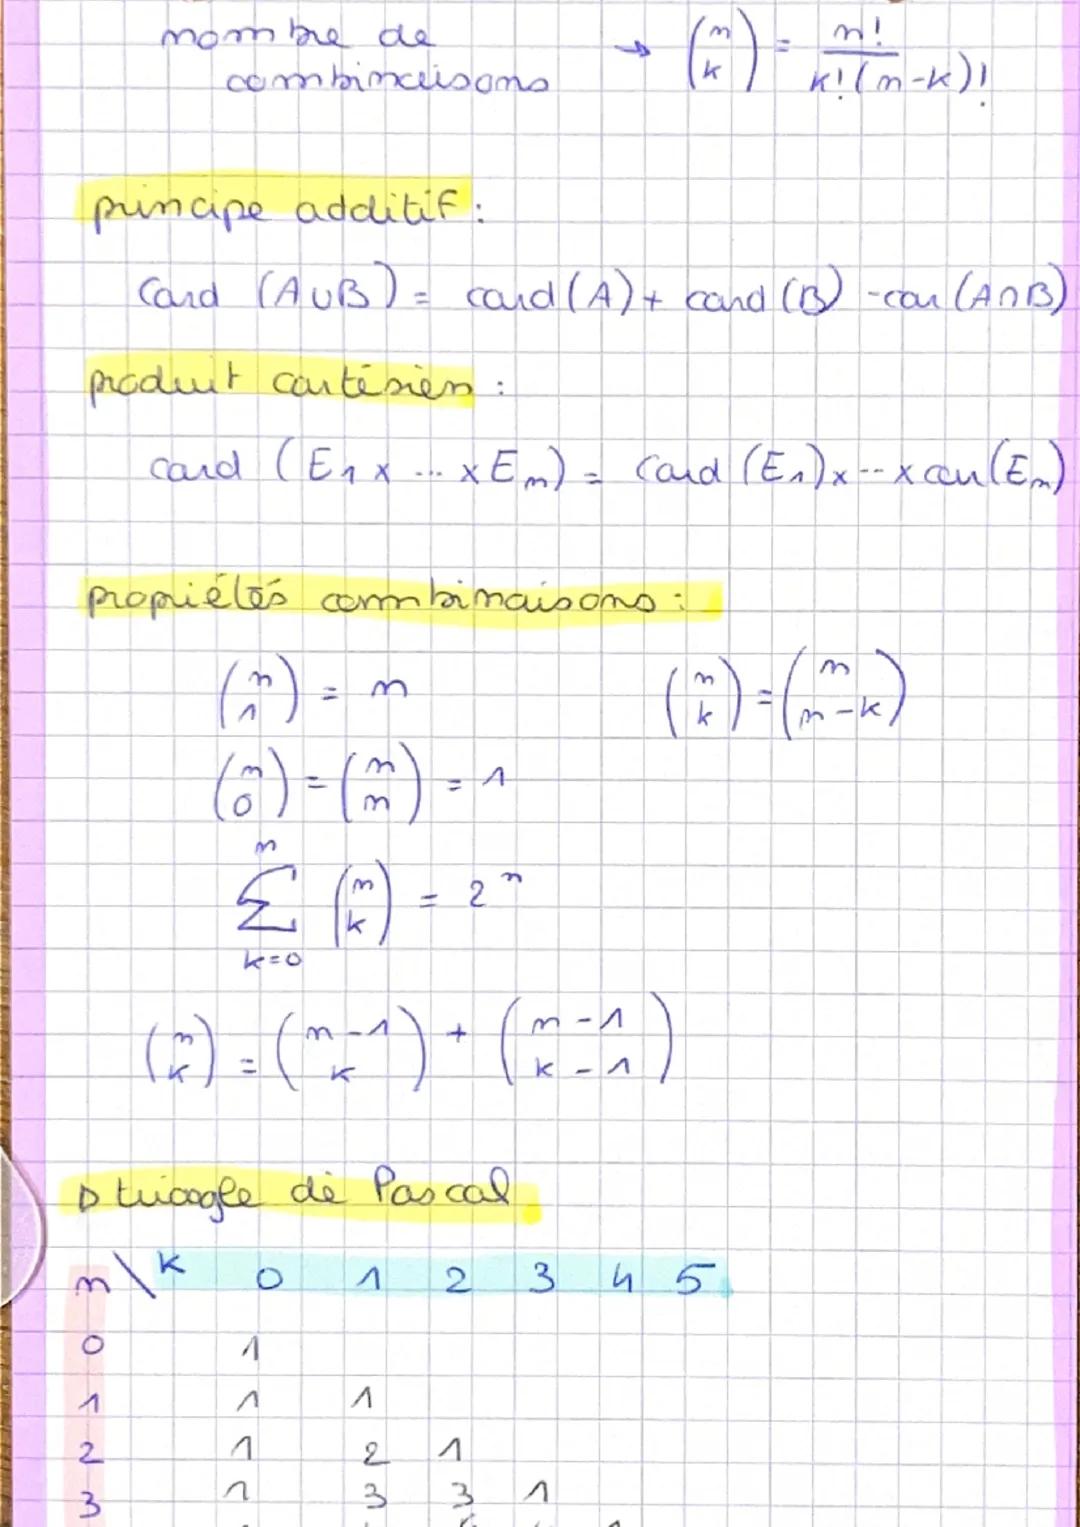 nombre de
combinaisons → (n k) = n! / k!(n-k)!
principe additif :
Card (A∪B) = card (A) + card (B) - car (A∩B)
produit cartésien :
card (E1 x ... x Em) = Card (E1) x -- x car (Em)
propriétés combinaisons :
(n 1) = n (n k) = (n n-k)
(n 0) = (n n) = 1
n
Σ (n k) = 2^n
k=0
(n k) = (n-1 k) + (n-1 k-1)
triangle de Pascal
n \ k 0 1 2 3 4 5
0 1
1 1 1
2 1 2 1
3 1 3 3 1